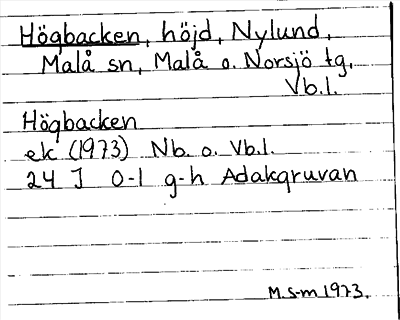 Högbacken, höjd, Nylund,
Malå sn, Malå o. Norsjö tg,
Vb.l.
Högbacken
ek (1973) Nb. o. Vb.l.
24 J 0-1 g-h Adakgruvan
M.S-m 1973.